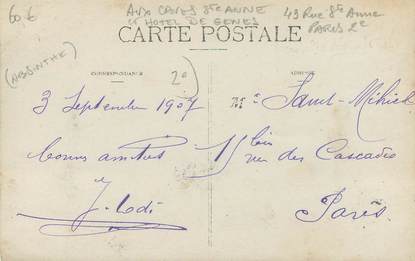 60.6
AUX CAVES Ste ANNE
et HOTEL DE GENES
43 Rue Ste Anne
PARIS 2e
CARTE POSTALE
(ABSINTHE)
CORRESPONDANCE
2°
ADRESSE
3 Septembre 1907
Mr Saint-Mihiel
bonnes amitiés
15 bis rue des Cascades
J. Lodi
Paris